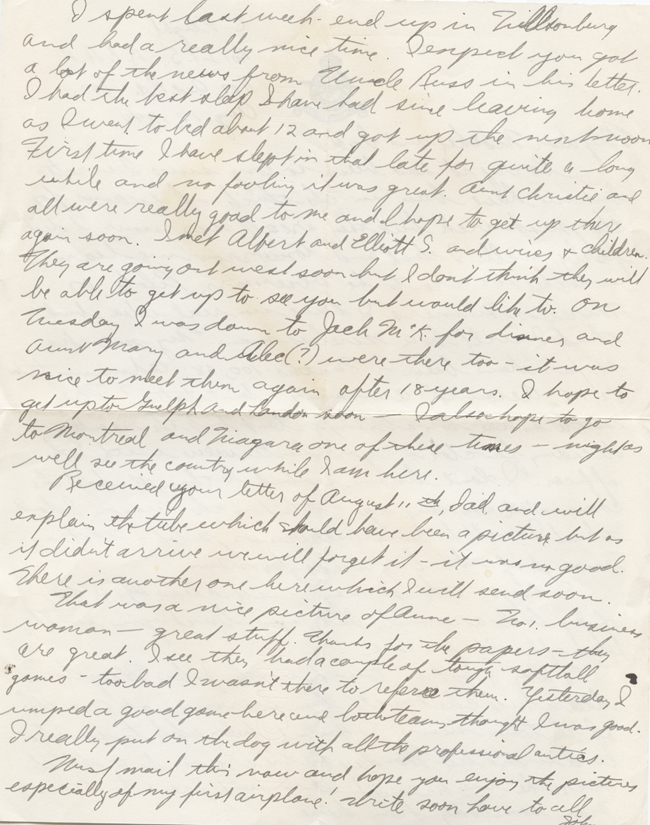 I spent last week-end up in Tillsonburg
and had a really nice time. I expect you got
a lot of the news from Uncle Russ in his letter.
I had the best sleep I have had since leaving home
as I went to bed about 12 and got up the next noon
First time I have slept in that late for quite a long
while and no fooling it was great. Aunt Christie and
all were really good to me and I hope to get up there
again soon. I met Albert and Elliott S. and wives & children.
They are going out west soon but I don't think they will
be able to get up to see you but would like to. On
Tuesday I was down to Jack McK. for dinner and
Aunt Mary and Alec(?) were there too - it was
nice to meet them again after 18 years. I hope to
get up to Guelph and London soon - I also hope to go
to Montreal and Niagara one of these times - might as
well see the country while I am here.
Received your letter of August 11th, Dad, and will
explain the tube which should have been a picture but as
it didn't arrive we will forget it - it was no good.
There is another one here which I will send soon.
That was a nice picture of Anne - No 1. business
woman - great stuff. Thanks for the papers - they
are great. I see they had a couple of tough softball
games - too bad I wasn't there to referee them. Yesterday I
umped a good game here and both teams thought I was good.
I really put on the dog with all the professional antics.
Must mail this now and hope you enjoy the pictures
especially of my first airplane! Write soon love to all
John